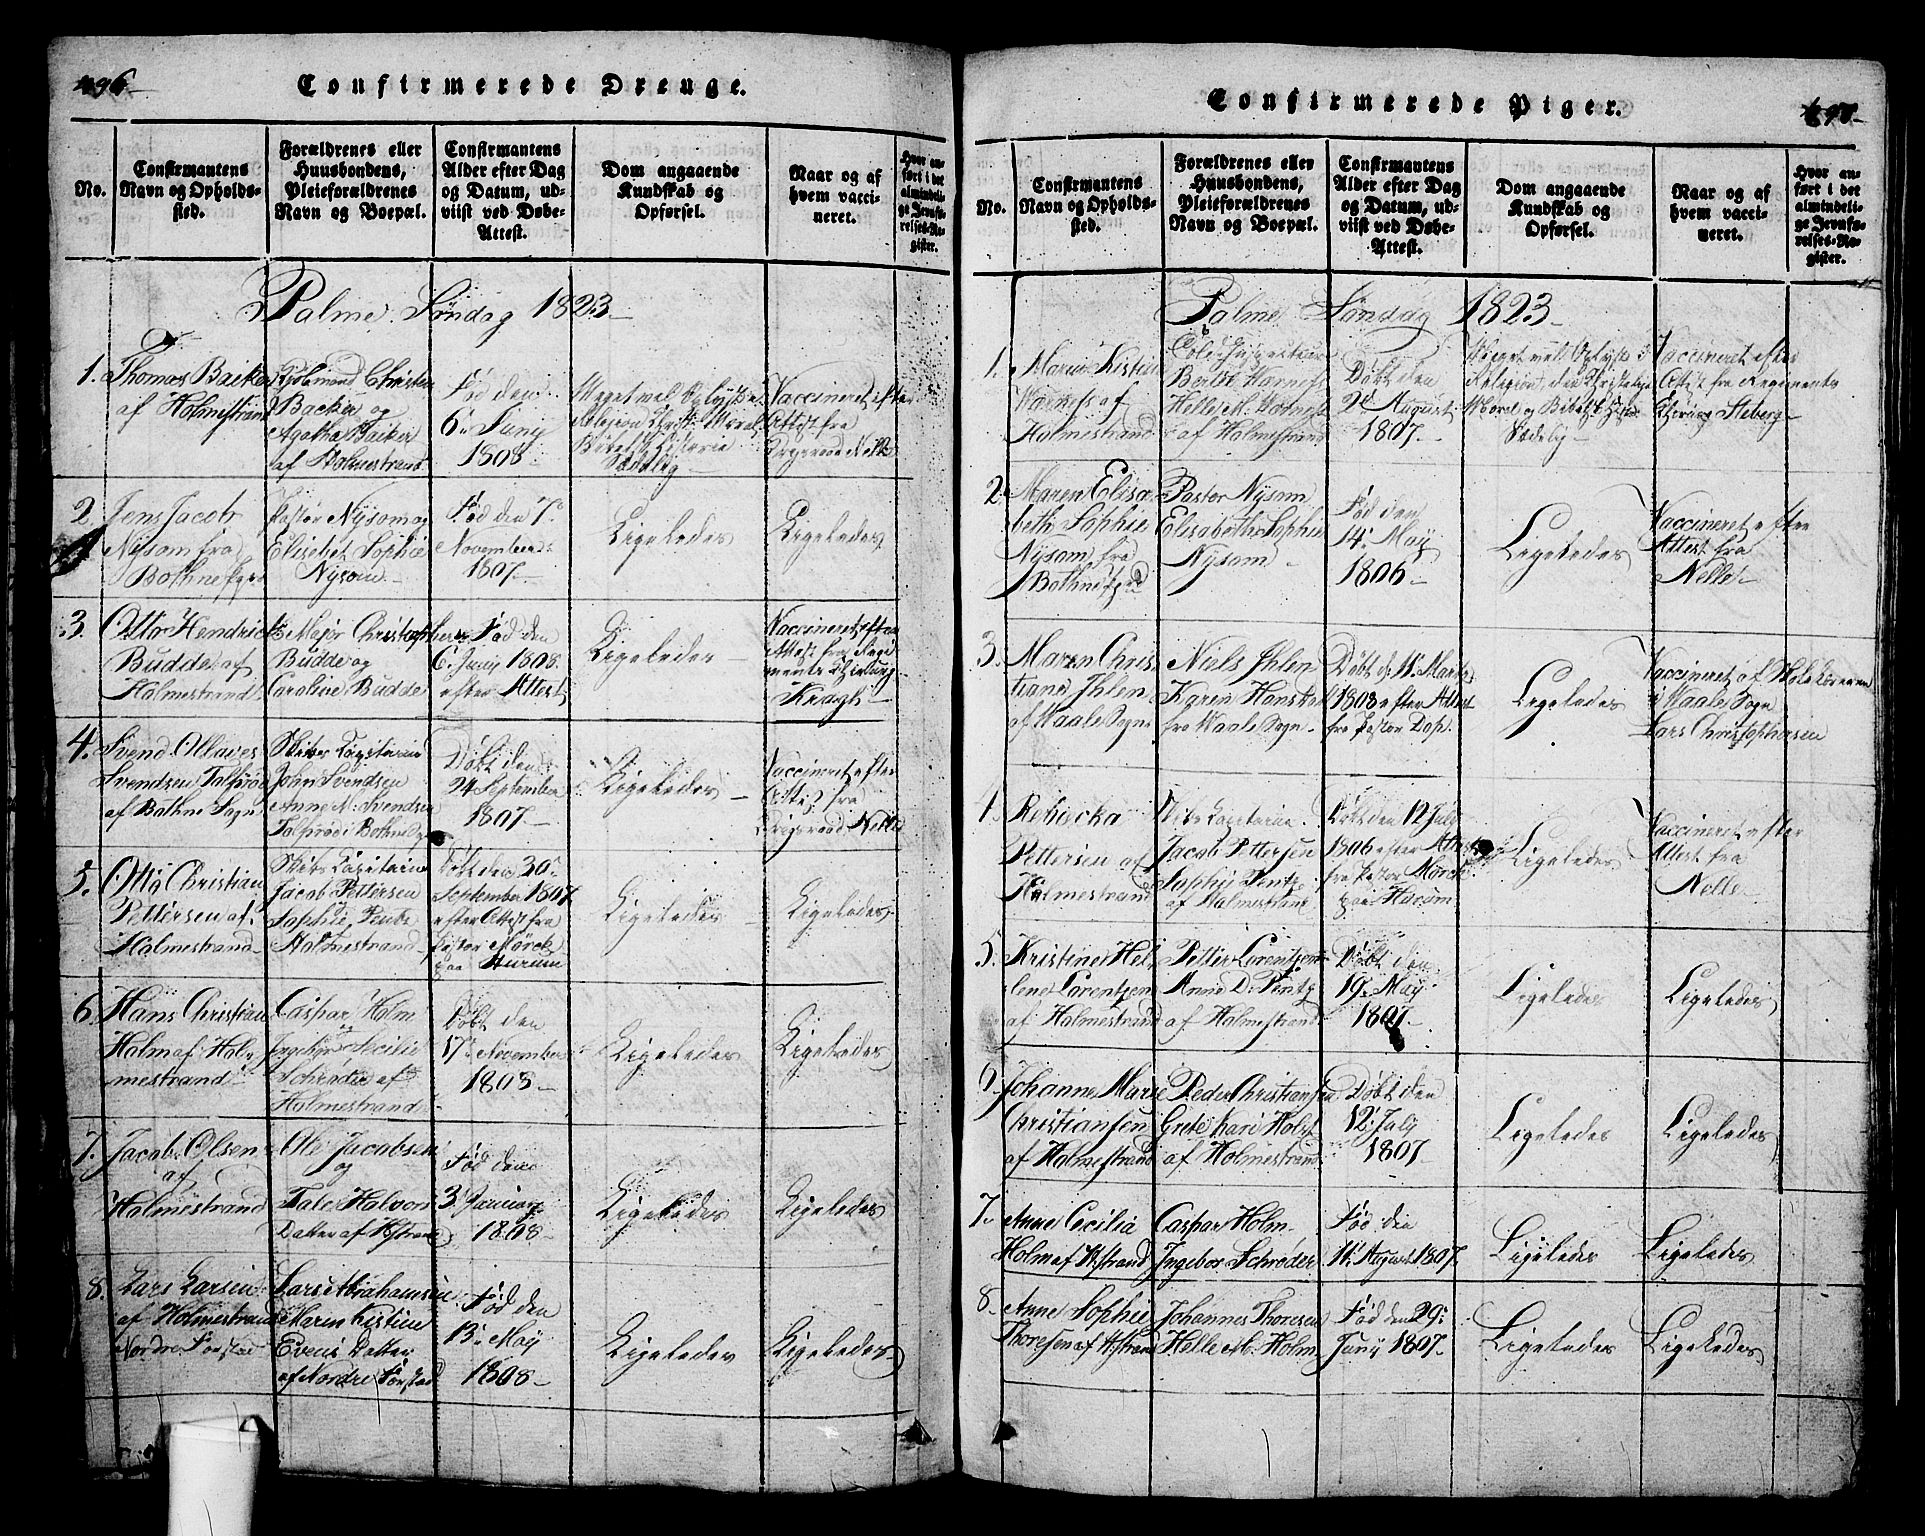 496
Confirmerede Drenge.
No.
Confirmantens
Navn og Opholds-
sted.
Forældrenes eller
Huusbondens,
Pleieforældrenes
Navn og Boepæl.
Confirmantens
Alder efter Dag
og Datum, ud-
viist ved Døbe-
Attest.
Dom angaaende
Kundskab og
Opførsel.
Naar og af
hvem vacci-
neret.
Hvor an-
ført i det
almindeli-
ge Jevnfø-
relses-Re-
gister.
Palme Søndag 1823
1.
Thomas Backer
af Holmestrand
Christen
Backer og
Agatha Backer
af Holmestrand
Fød den
6 Juny
1808
Meget vel Oplyst i
Religion Christ. Moral
Bibelsk Historie
Sædelig
Vaccineret efter
Attest fra
Nelle
2
Jens Jacob
Nysom fra
Bothne
Pastor Nysom og
Elisebet Sophie
Nysom
Fød den 7
November
1807
Ligeledes
Ligeledes
3.
Otto Hendrick
Budde af
Holmestrand
Major Christopher
Budde og
Caroline Budde
Fød den
6 Juny 1808
efter Attest
Ligeledes
Vaccineret efter
Attest fra Regi
ments Chirurg
Kragh
4.
Svend Ollaves
Svendsen
af Bothne Sogn
Skibs Capitain
John Svendsen
Anne M. Svendsen
i Bothne
Døbt den
24 September
1807
Ligeledes
Vaccineret efter
Attest fra
Nelle
5.
Otto Christian
Pettersen af
Holmestrand
Skibs Capitain
Jacob Pettersen
Sophie
Holmestrand
Døbt den 30
September 1807
efter Attest fra
Pastor Mörck
paa Hurum
Ligeledes
Ligeledes
6.
Hans Christian
Holm af Hol
mestrand
Caspar Holm
og
Ingebor Secilie
Schrøder af
Holmestrand
Døbt den
17 November
1808
Ligeledes
Ligeledes
7.
Jacob Olsen
af
Holmestrand
Ole Jacobsen
og
Tale Halvors
Datter af Hstrand
Fød den
3 Januar
1808
Ligeledes
Ligeledes
8.
Lars Larsen
af Holmestrand
Nordre
Lars Abrahamsen
Maren Kistine
Evens Datter
af Nordre
Fød den
13 May
1808
Ligeledes
Ligeledes
Confirmerede Piger.
497
No.
Confirmantens
Navn og Opholds-
sted.
Forældrenes eller
Huusbondens,
Pleieforældrenes
Navn og Boepæl.
Confirmantens
Alder efter Dag
og Datum, ud-
viist ved Døbe-
Attest.
Dom angaaende
Kundskab og
Opførsel.
Naar og af
hvem vacci-
neret.
Hvor an-
ført i det
almindeli-
ge Jevnfø-
relses-Re-
gister.
Palme Søndag 1823
1.
Maria Kistin
Warness af
Holmestrand
Berbt Warness
Helle M. Warness
af Holmestrand
Døbt den
August
1807
Meget vel Oplyst i
Religion, den Christelige
Moral og Bibelsk Historie
Sædelig
Vaccineret efter
Attest fra Regiments
Chirurg Steberg
2.
Maren Elisa
beth Sophie
Nysom fra
Bothne
Pastor Nysom
Elisabeth Sophie
Nysom
Fød den
14 May
1806
Ligeledes
Vaccineret efter
Attest fra
Nelle
3.
Maren Chris
tiane Ihlen
af Waale Sogn
Niels Ihlen
Karen
fra Waale Sogn
Døbt d. 11 Marts
1808 efter Attest
fra Pastor
Ligeledes
Vaccineret af
i Waale Sogn
Lars Christophersen
4.
Rebecka
Pettersen af
Holmestrand
Skibs Capitain
Jacob Pettersen
Sophie Pentz
af Holmestrand
Døbt den 12 July
1806 efter Attest
fra Pastor Mörck
paa Hurum
Ligeledes
Vaccineret efter
Attest fra
Nelle
5.
Kristine Hel
lene Lorentzen
af Holmestrand
Petter Lorentzen
Anne D. Pentz
af Holmestrand
Døbt den
19 May
1807
Ligeledes
Ligeledes
6.
Johanne Marie
Christiansen
af Holmestrand
Peder Christiansen
Grete Kari Holst
af Holmestrand
Døbt den
12 July
1807
Ligeledes
Ligeledes
7.
Anne Cecilia
Holm af Hstrand
Caspar Holm
Ingebor Schrøder
Fød den
11 August 1807
Ligeledes
Ligeledes
8
Anne Sophie
Thoresen af Hstrand
Johannes Thoresen
Helle M. Holm
Fød den 29
Juny 1807
Ligeledes
Ligeledes